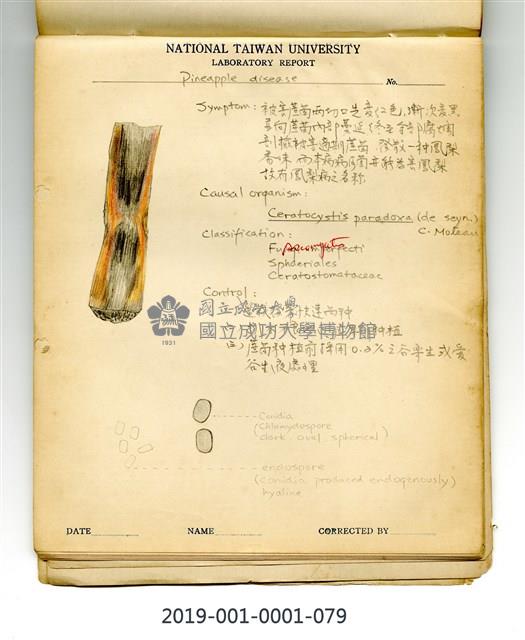 NATIONAL TAIWAN UNIVERSITY
LABORATORY REPORT
Pineapple disease No.
Symptom: 被害蔗苗兩切口先變紅色,漸次變黑
並向蔗苗內部蔓延 終至全部腐爛
剖檢被害適期蔗苗 發散一种鳳梨
香味
故有鳳梨病之名称
Causal organism:
Ceratocystis paradoxa (de seyn.)
C. Moreau
Classification:
Fungi imperfecti
Ascomycetes
Sphaeriales
Ceratostomataceae
Control:
種植
蔗苗种植前使用0.2%之谷樂生或愛
谷生液處理
國立成功大學
國立成功大學博物館
1931
Conidia
(Chlamydospore
dark oval, spherical)
endospore
(conidia produced endogenously)
hyaline
DATE NAME CORRECTED BY
2019-001-0001-079